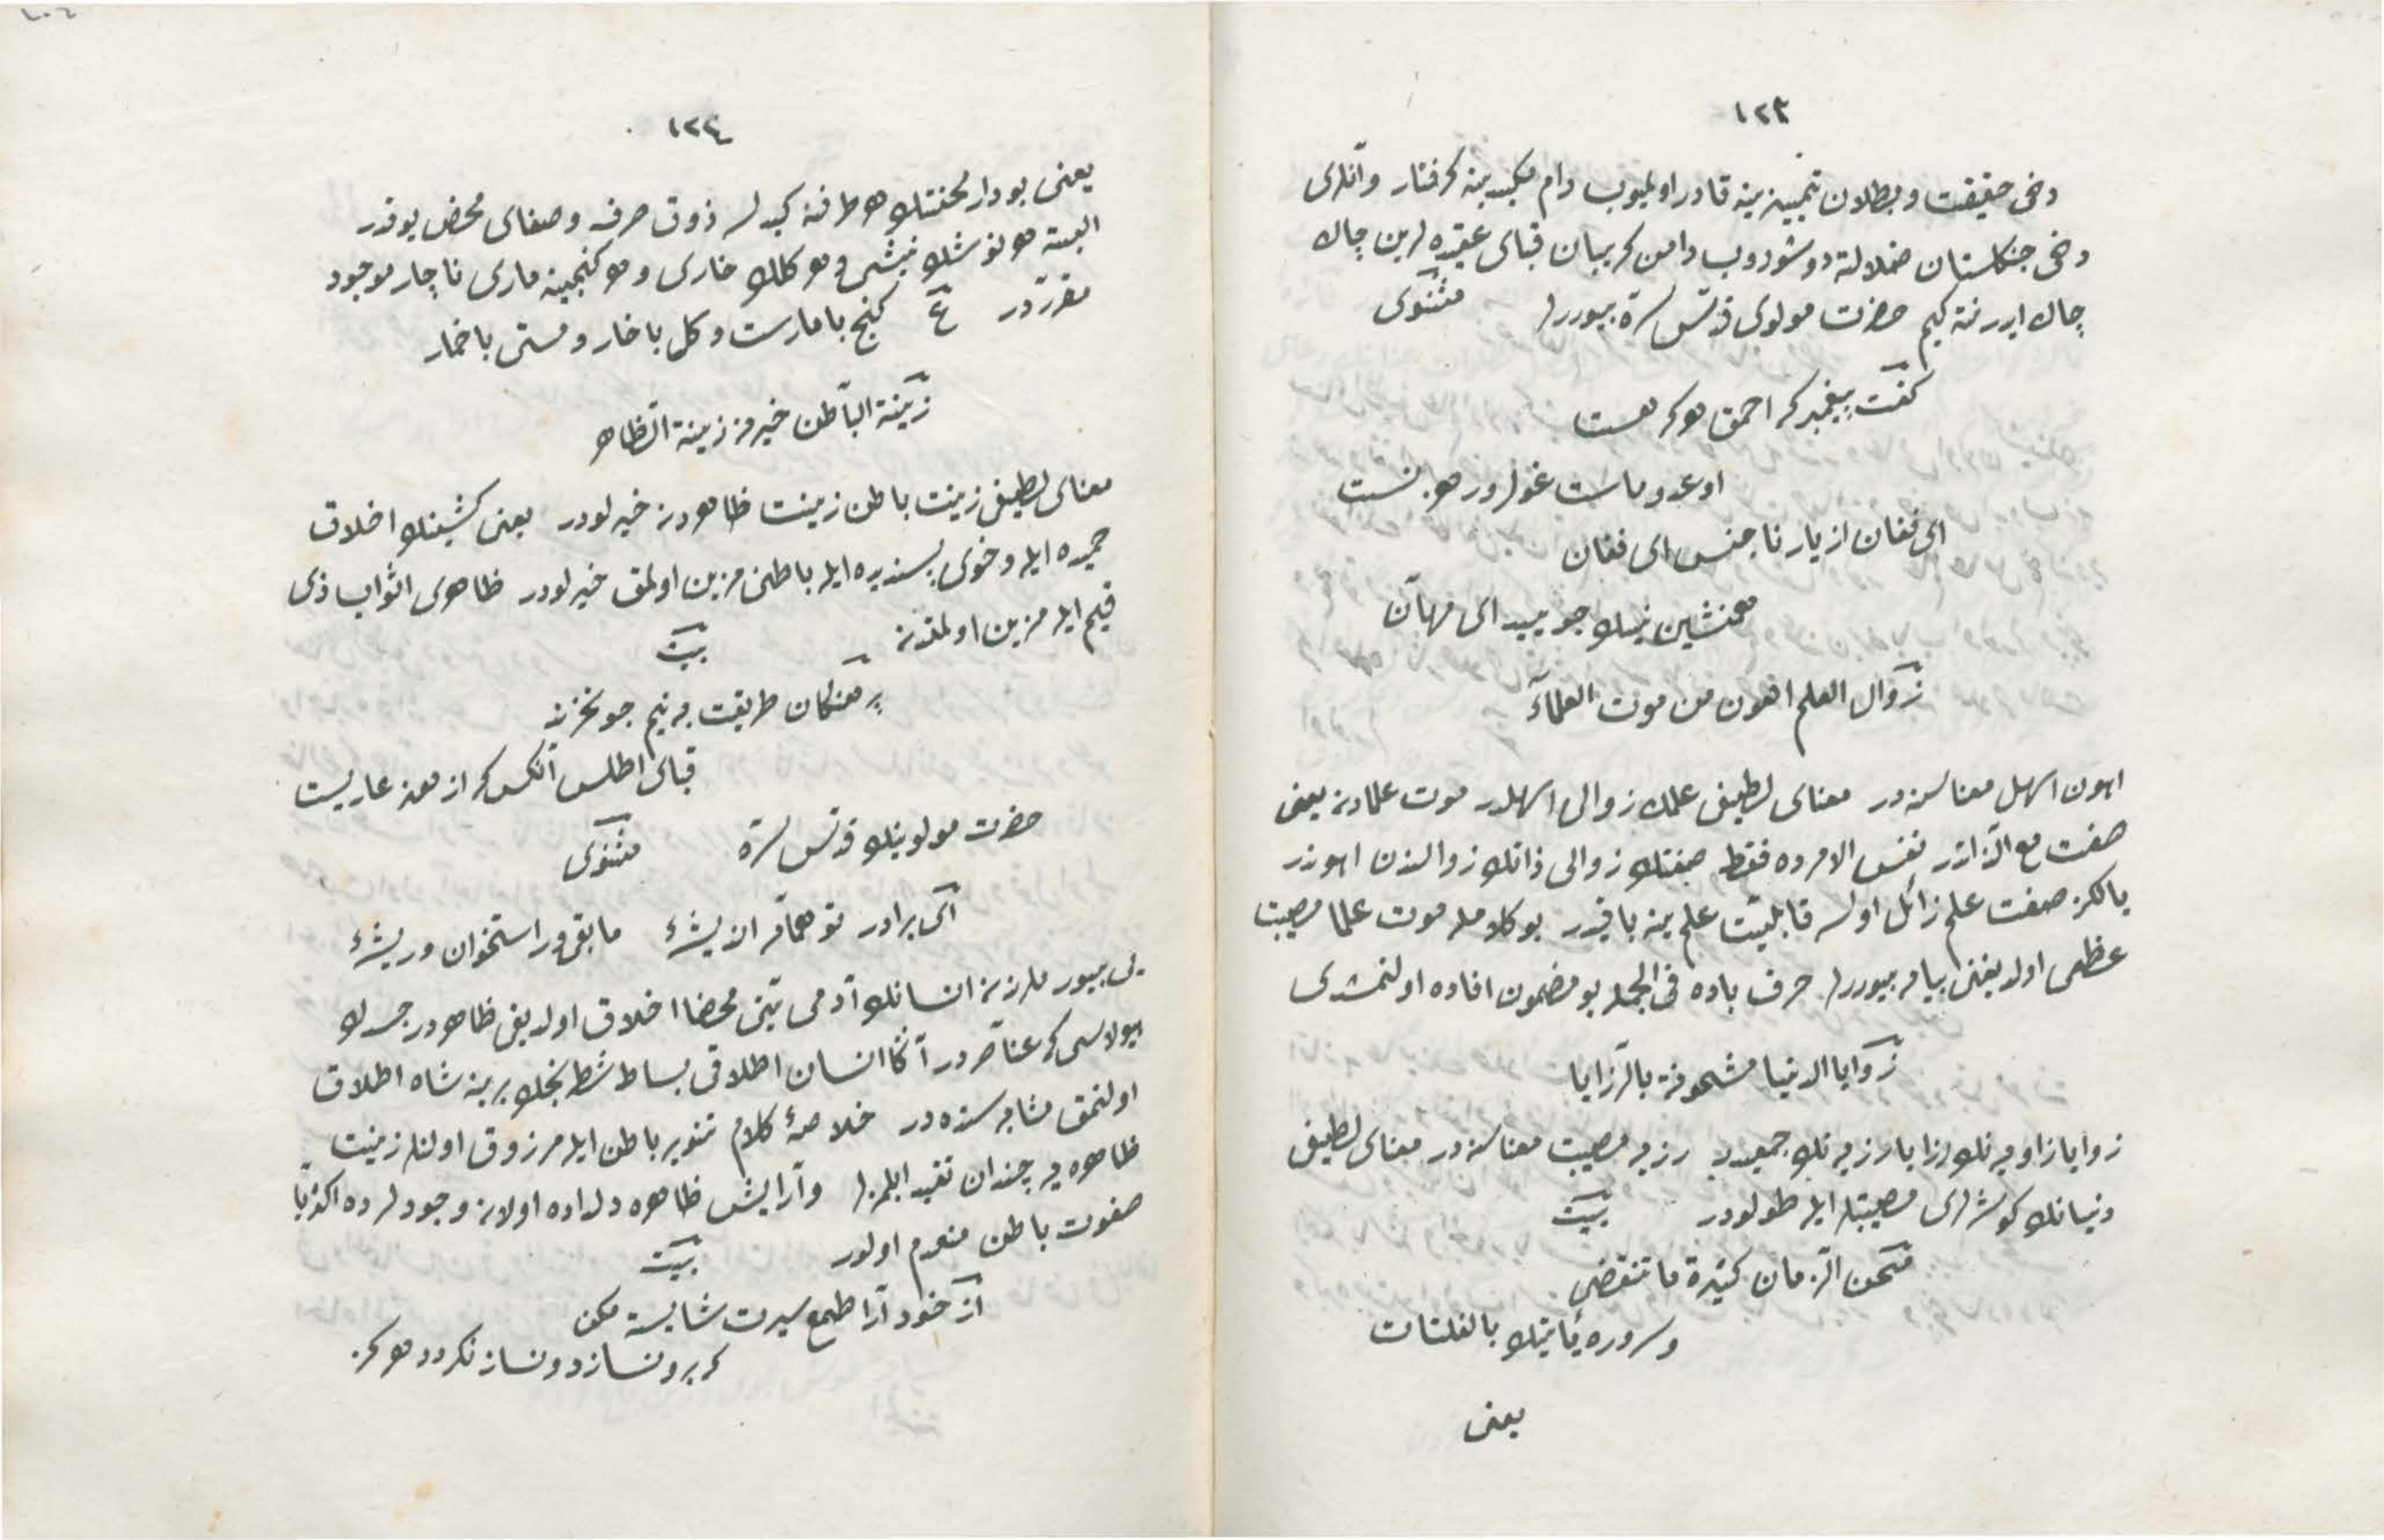 ١٢٣
دخی حقیقت و بطلان تمییزینه قادر اولمیوب دام کیدینه گرفتار و آنلری
دخی جنکلستان ضلالته دوشوروب دامن گریبان قبای عقیده لرین چاك
چاك ایدر نته کیم حضرت مولوی قدّس سرّه بیوررلر مثنوی
کفت پیغمبر که احمق هر که هست
او عدو ماست غول ورهزنست
ای فغان از یار ناجنس ای فغان
همنشین نیك جویید ای مهان
زوال العلم اهون من موت العلمآء
اهون اسهل معناسنه در معنای لطیفی علمك زوالی اسهلدر موت علمادن یعنی
صفت مع الذاتدر نفس الامرده فقط صفتك زوالی ذاتك زوالندن اهوندر
یالکز صفت علم زائل اولسه قابلیّت علمینه باقیدر بو کلامله موت علما مصیبت
عظمی اولدیغنی بیان بیوررلر حرف باده فی الجمله بو مضمون افاده اولنمشدی
زوایا الدنیا مشحونة بالرّزایا
زوایا زاویه نك رزایا رزیه نك جمعیدر رزیه مصیبت معناسنه در معنای لطیفی
دنیانك کوشه لری مصیبتلر ایله طولودر بیت
محن الزمان كثيرة ما تنقضى
وسروره يأتيك بالفلتات
یعنی
١٢٤
یعنی بو دار محنتك هر طرفنه کیدلسه ذوق صرف و صفای محض یوقدر
البته هر نوشك نیشی و هر کلك خاری و هر کنجینه ماری ناچار موجود
مقرّردر ع کنج با مارست و کل با خار و مستی با خمار
زینة الباطن خیر من زینة الظاهر
معنای لطیفی زینت باطن زینت ظاهردن خیرلودر یعنی کشینك اخلاق
حمیده ایله و خوی پسندیده ایله باطنی مزین اولمق خیرلودر ظاهری اثواب ذی
قیم ایله مزین اولمقدن بیت
برهنکان طریقت به نیم جو نخرند
قبای اطلس آنکس که از هنر عاریست
حضرت مولوینك قدّس سرّه مثنوی
ای برادر تو همان اندیشۀ مابقی تو استخوان و ریشۀ
بیورملرندن انسانك آدمی تینی محضا اخلاق اولدیغی ظاهردر جسدك
هیولاسی که عناصردر آکا انسان اطلاقی بساط شطرنجك برینه شاه اطلاق
اولنمق مثابه سنده در خلاصۀ کلام تنویر باطن ایله مرزوق اولنلر زینت
ظاهره یه چندان تقید ایلمزلر و آرایش ظاهره دلداده اولان وجودلرده اکثریّا
صفوت باطن منعدم اولور بیت
از خودآرا طمع سیرت شایسته مکن
که برون ساز درون ساز نکردد هرکز